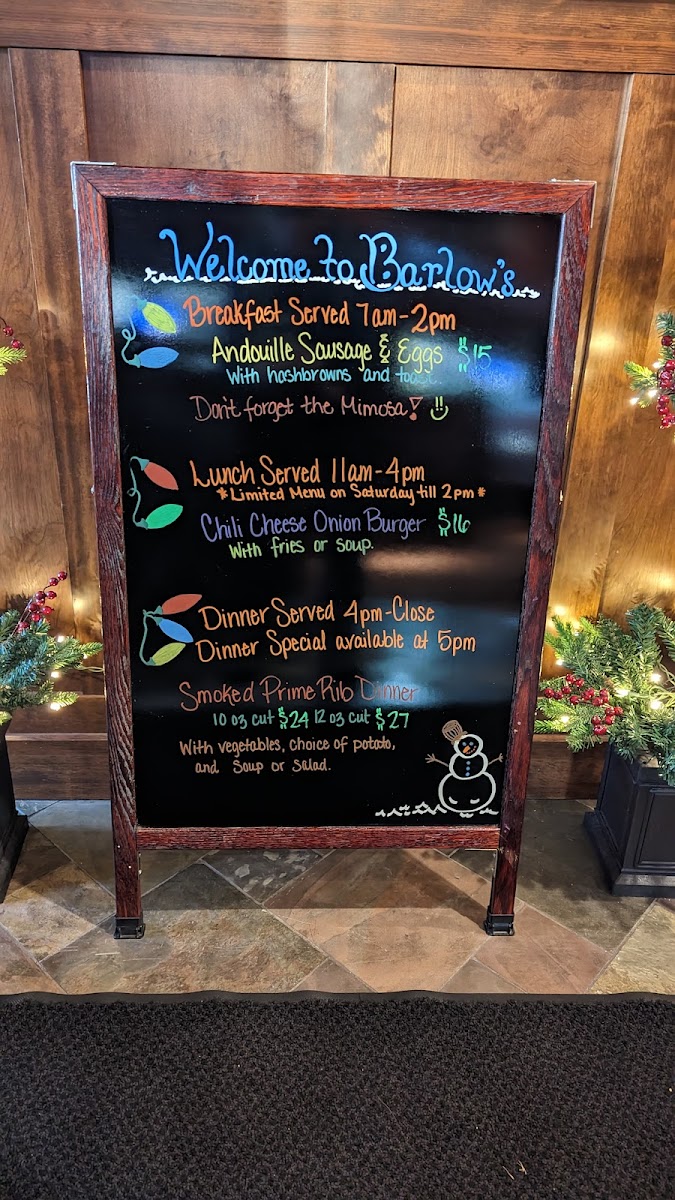 Welcome to Barlow's
Breakfast Served 7am-2pm
Andouille Sausage & Eggs $15
With hashbrowns and toast.
Don't forget the Mimosa!
Lunch Served 11am-4pm
*Limited Menu on Saturday till 2pm*
Chili Cheese Onion Burger $16
With fries or soup.
Dinner Served 4pm-Close
Dinner Special available at 5pm
Smoked Prime Rib Dinner
10 oz cut $24 12 oz cut $27
With vegetables, choice of potato,
and soup or salad.